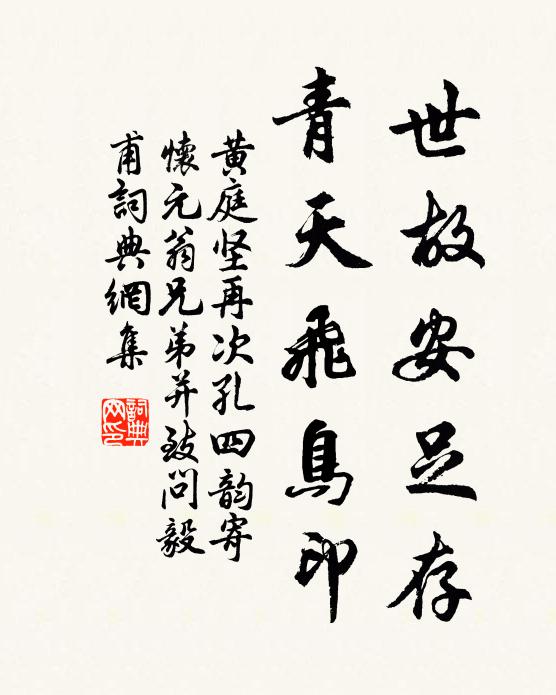 世故安足存
青天飛鳥印
黄庭坚再次孔四韵寄
懷元翁兄弟并致問毅
甫詞典網集
詞典
网印